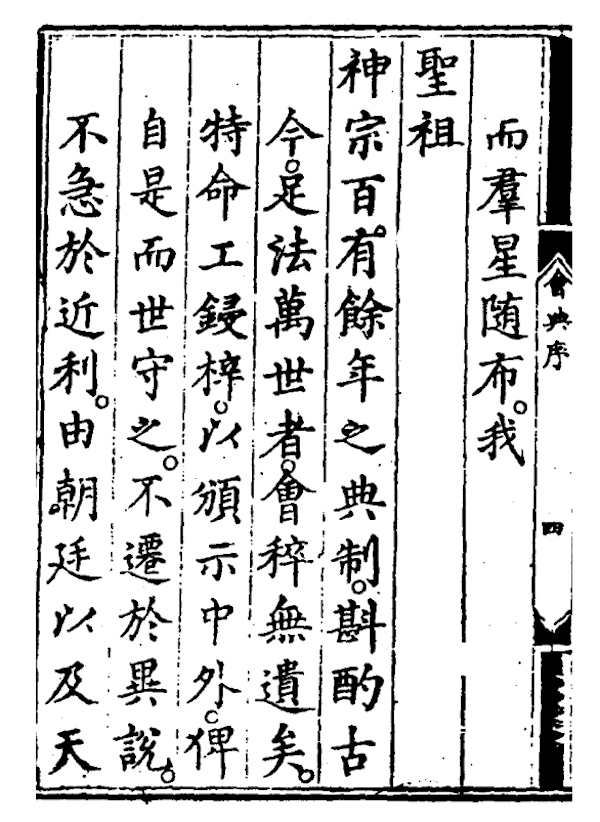 會典序
四
而羣星随布。我
聖祖
神宗百有餘年之典制。斟酌古
今。足法萬世者。會稡無遺矣。
特命工鋟梓。以頒示中外。俾
自是而世守之。不遷於異說。
不急於近利。由朝廷以及天